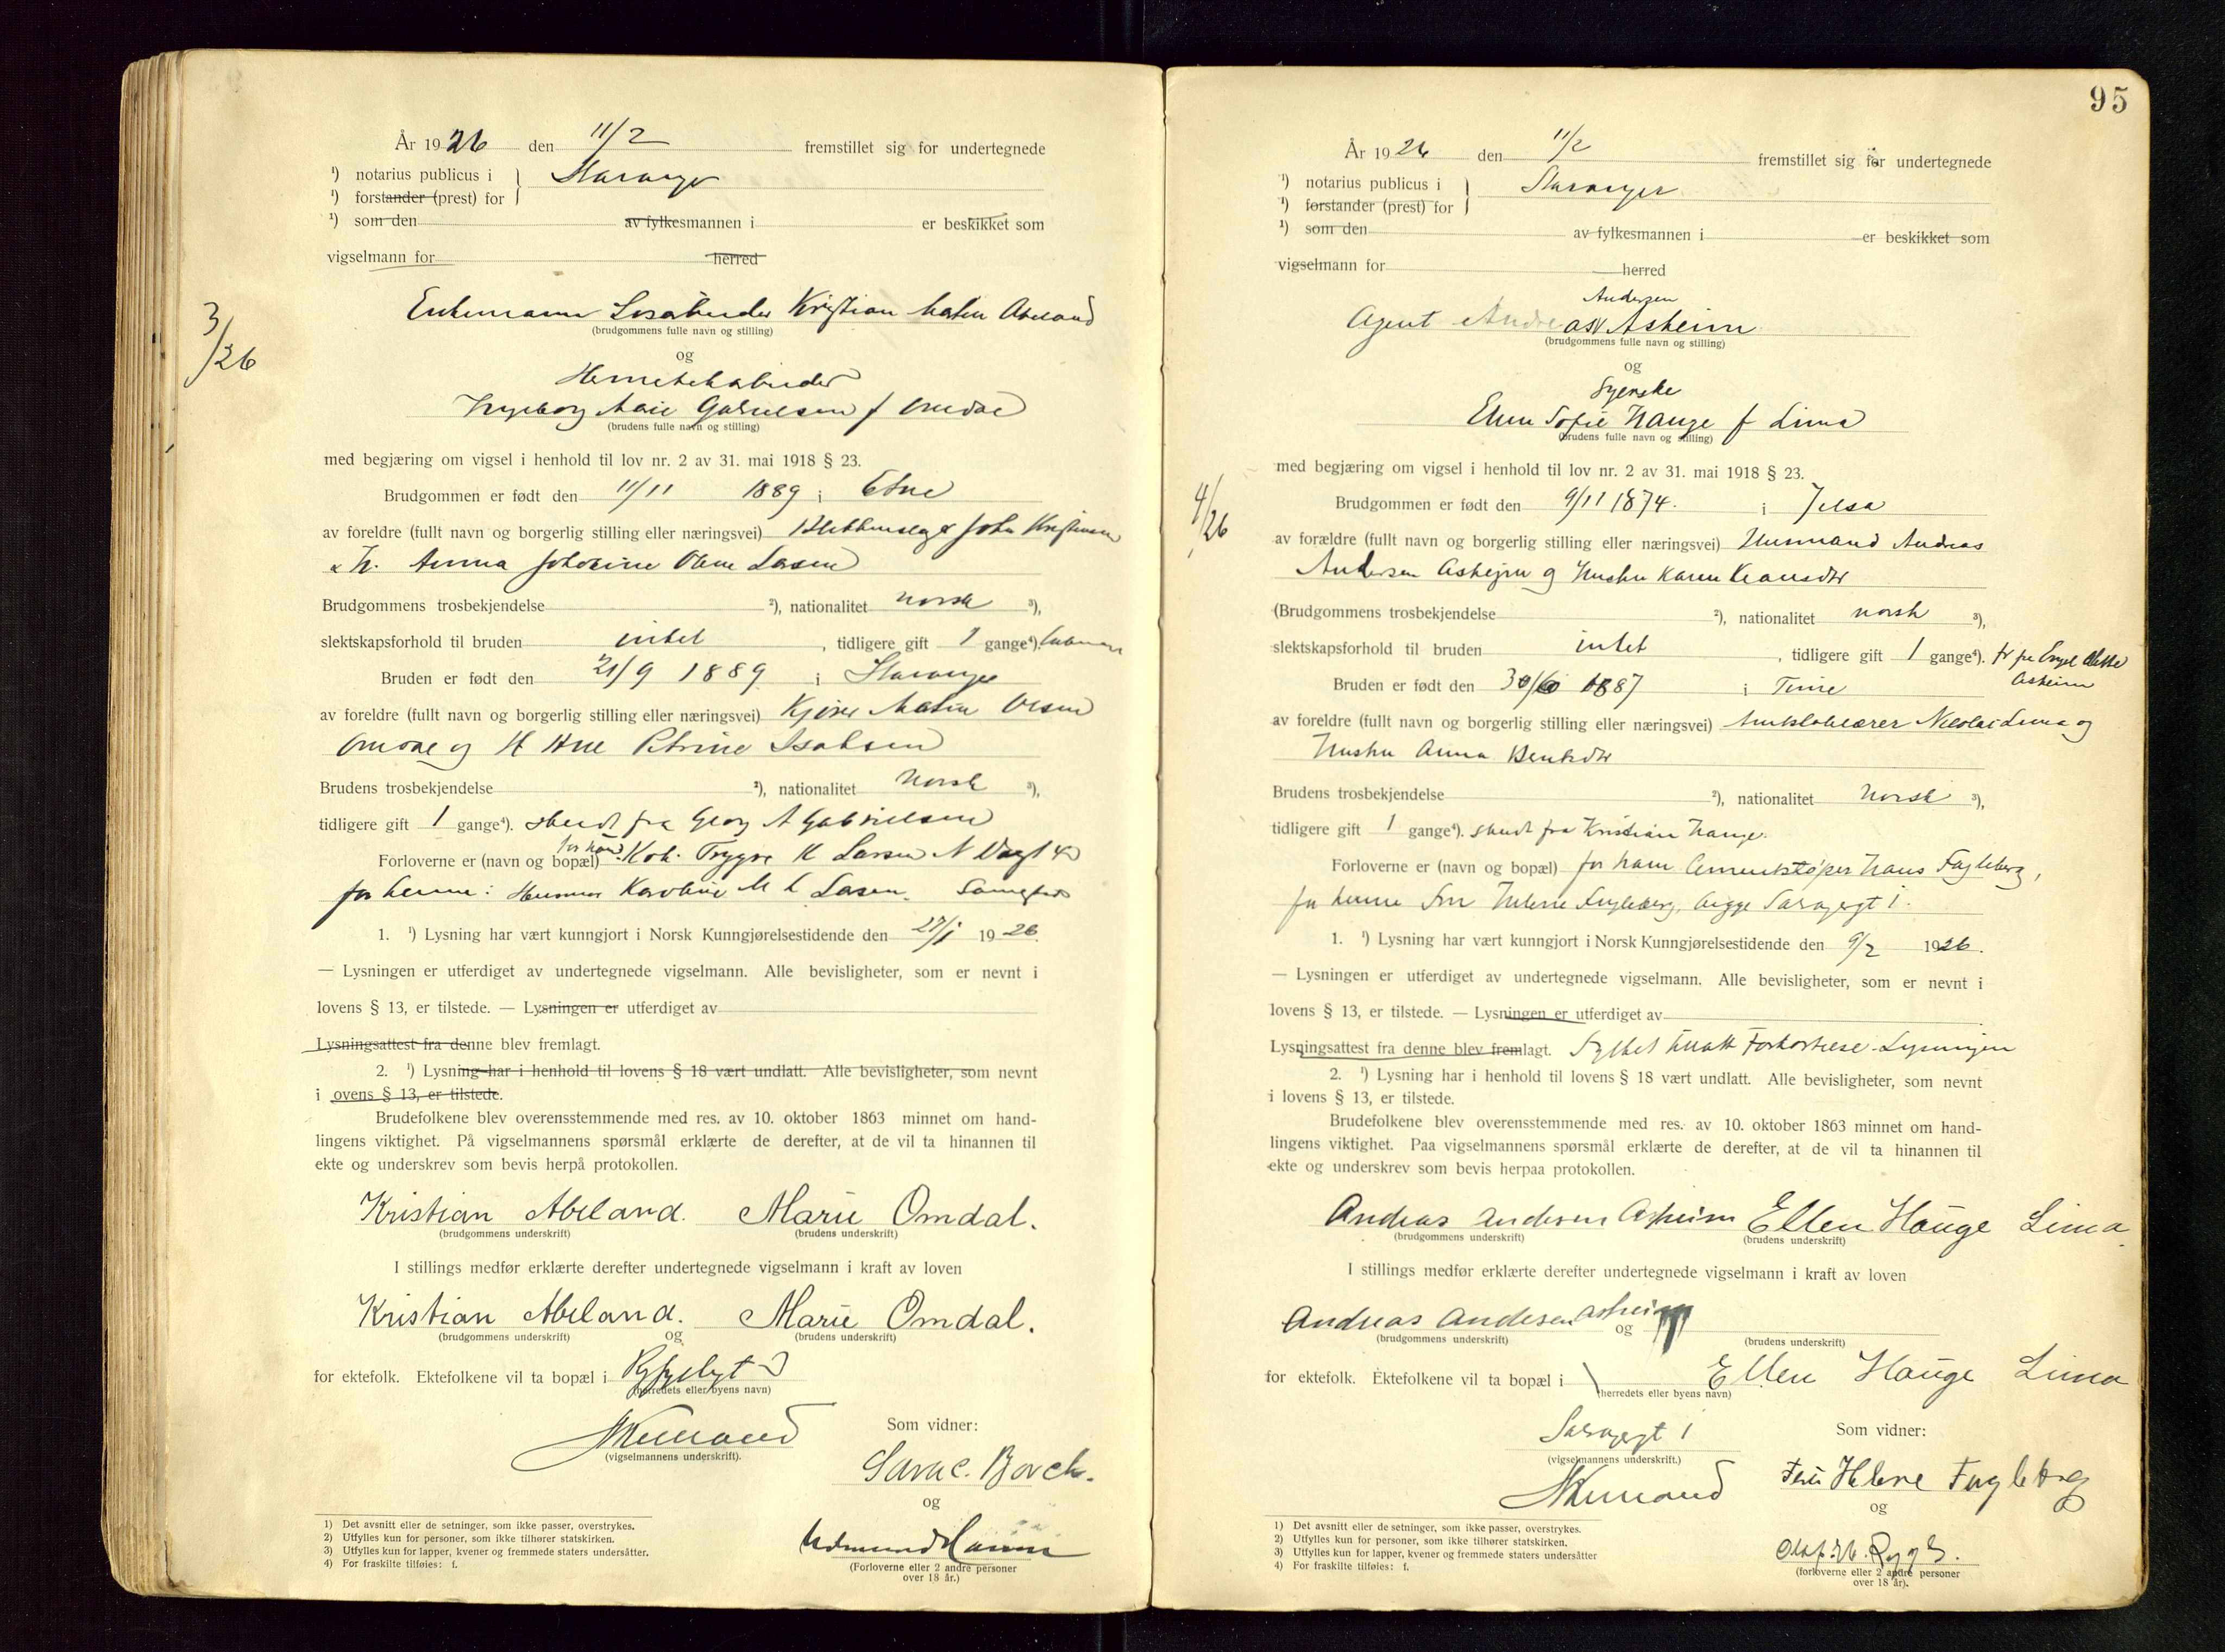 År 1926 den 11/2 fremstillet sig for undertegnede
¹) notarius publicus i } Stavanger
¹) forstander (prest) for
¹) som den av fylkesmannen i er beskikket som
vigselmann for herred
3/26
Enkemann Løsarbeider Kristian Martin Abeland
(brudgommens fulle navn og stilling)
og
Ingeborg Marie Gabrielsen f Omdal
(brudens fulle navn og stilling)
med begjæring om vigsel i henhold til lov nr. 2 av 31. mai 1918 § 23.
Brudgommen er født den 11/11 1889 i Etne
av foreldre (fullt navn og borgerlig stilling eller næringsvei) John Kristiansen
& H. Anna Larsen
Brudgommens trosbekjendelse ²), nationalitet norsk ³),
slektskapsforhold til bruden intet , tidligere gift 1 gange⁴).
Bruden er født den 21/9 1889 i Stavanger
av foreldre (fullt navn og borgerlig stilling eller næringsvei) Martin Olsen
Omdal og H Petrine Isaksen
Brudens trosbekjendelse ²), nationalitet Norsk ³),
tidligere gift 1 gange⁴). skilt fra Georg A Gabrielsen
Forloverne er (navn og bopæl) for ham: Trygve K Larsen
for henne: Karoline M L Larsen. Samested
1. ¹) Lysning har vært kunngjort i Norsk Kunngjørelsestidende den 27/1 1926.
— Lysningen er utferdiget av undertegnede vigselmann. Alle bevisligheter, som er nevnt i
lovens § 13, er tilstede. — Lysningen er utferdiget av
Lysningsattest fra denne blev fremlagt.
2. ¹) Lysning har i henhold til lovens § 18 vært undlatt. Alle bevisligheter, som nevnt
i ovens § 13, er tilstede.
Brudefolkene blev overensstemmende med res. av 10. oktober 1863 minnet om hand-
lingens viktighet. På vigselmannens spørsmål erklærte de derefter, at de vil ta hinannen til
ekte og underskrev som bevis herpå protokollen.
Kristian Abeland. Marie Omdal.
(brudgommens underskrift) (brudens underskrift)
I stillings medfør erklærte derefter undertegnede vigselmann i kraft av loven
Kristian Abeland. Marie Omdal.
(brudgommens underskrift) og (brudens underskrift)
for ektefolk. Ektefolkene vil ta bopæl i
(herredets eller byens navn)
Som vidner:
(vigselmannens underskrift).
Sara C. Borch.
og
(Forloverne eller 2 andre personer
over 18 år.)
1) Det avsnitt eller de setninger, som ikke passer, overstrykes.
2) Utfylles kun for personer, som ikke tilhører statskirken.
3) Utfylles kun for lapper, kvener og fremmede staters undersåtter.
4) For fraskilte tilføies: f.
95
År 1926 den 11/2 fremstillet sig før undertegnede
¹) notarius publicus i } Stavanger
¹) forstander (prest) for
¹) som den av fylkesmannen i er beskikket som
vigselmann for herred
Andersen
Agent Andreas Asheim
(brudgommens fulle navn og stilling)
og
Syerske
Ellen Sofie Hauge f Lima
(brudens fulle navn og stilling)
med begjæring om vigsel i henhold til lov nr. 2 av 31. mai 1918 § 23.
4/26
Brudgommen er født den 9/11 1874. i Jelsa
av forældre (fullt navn og borgerlig stilling eller næringsvei) Husmand Andreas
Andersen Asheim og Hustru Karen
(Brudgommens trosbekjendelse ²), nationalitet norsk ³),
slektskapsforhold til bruden intet , tidligere gift 1 gange⁴). fr fra
Asheim
Bruden er født den 30/6 1887 i Time
av foreldre (fullt navn og borgerlig stilling eller næringsvei) Nikolai Lima og
Hustru Anna
Brudens trosbekjendelse ²), nationalitet Norsk ³),
tidligere gift 1 gange⁴). skilt fra Kristian Hauge.
Forloverne er (navn og bopæl) for ham Cementstøper Hans Fugleberg,
for henne Fru Helene Fugleberg, begge
1. ¹) Lysning har vært kunngjort i Norsk Kunngjørelsestidende den 9/2 1926.
— Lysningen er utferdiget av undertegnede vigselmann. Alle bevisligheter, som er nevnt i
lovens § 13, er tilstede. — Lysningen er utferdiget av
Lysningsattest fra denne blev fremlagt.
2. ¹) Lysning har i henhold til lovens § 18 vært undlatt. Alle bevisligheter, som nevnt
i lovens § 13, er tilstede.
Brudefolkene blev overensstemmende med res. av 10. oktober 1863 minnet om hand-
lingens viktighet. Paa vigselmannens spørsmål erklærte de derefter, at de vil ta hinannen til
ekte og underskrev som bevis herpaa protokollen.
Andreas Andersen Asheim Ellen Hauge Lima
(brudgommens underskrift) (brudens underskrift)
I stillings medfør erklærte derefter undertegnede vigselmann i kraft av loven
Andreas Andersen Asheim
(brudgommens underskrift) og (brudens underskrift)
for ektefolk. Ektefolkene vil ta bopæl i Ellen Hauge Lima
(herredets eller byens navn)
Som vidner:
(vigselmannens underskrift.)
Fru Helene Fugleberg
og
(forloverne eller 2 andre personer
over 18 år).
1) Det avsnitt eller de setninger, som ikke passer, overstrykes.
2) Utfylles kun for personer, som ikke tilhører statskirken.
3) Utfylles kun for lapper, kvener og fremmede staters undersåtter
4) For fraskilte tilføies: f.